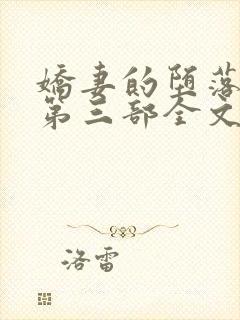 嬌妻的堕落
第三部全文
洛雷